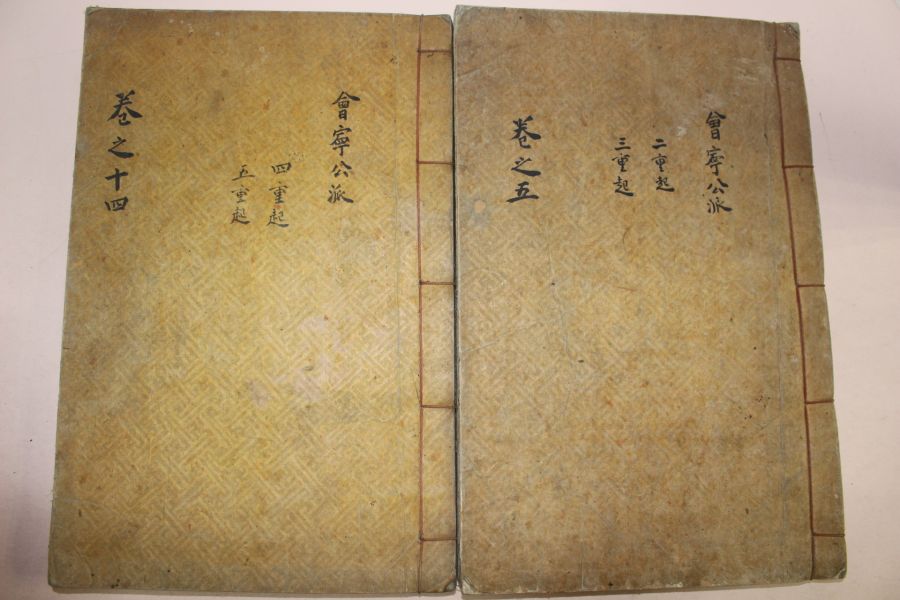 會寧公派
二重起
三重起
卷之五
會寧公派
四重起
五重起
卷之十四